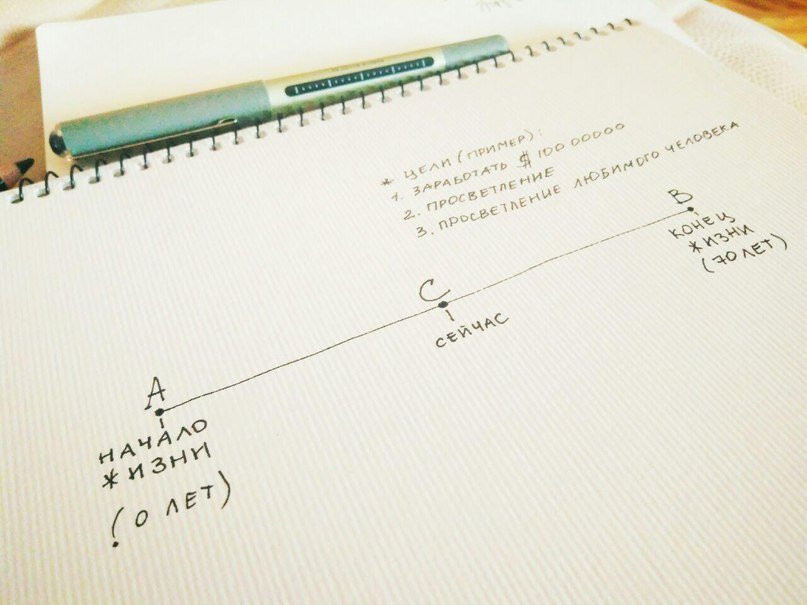 * ЦЕЛИ (ПРИМЕР):
1. ЗАРАБОТАТЬ $ 100 00000
2. ПРОСВЕТЛЕНИЕ
3. ПРОСВЕТЛЕНИЕ ЛЮБИМОГО ЧЕЛОВЕКА
B
КОНЕЦ
ЖИЗНИ
(70 ЛЕТ)
C
СЕЙЧАС
A
НАЧАЛО
ЖИЗНИ
(0 ЛЕТ)